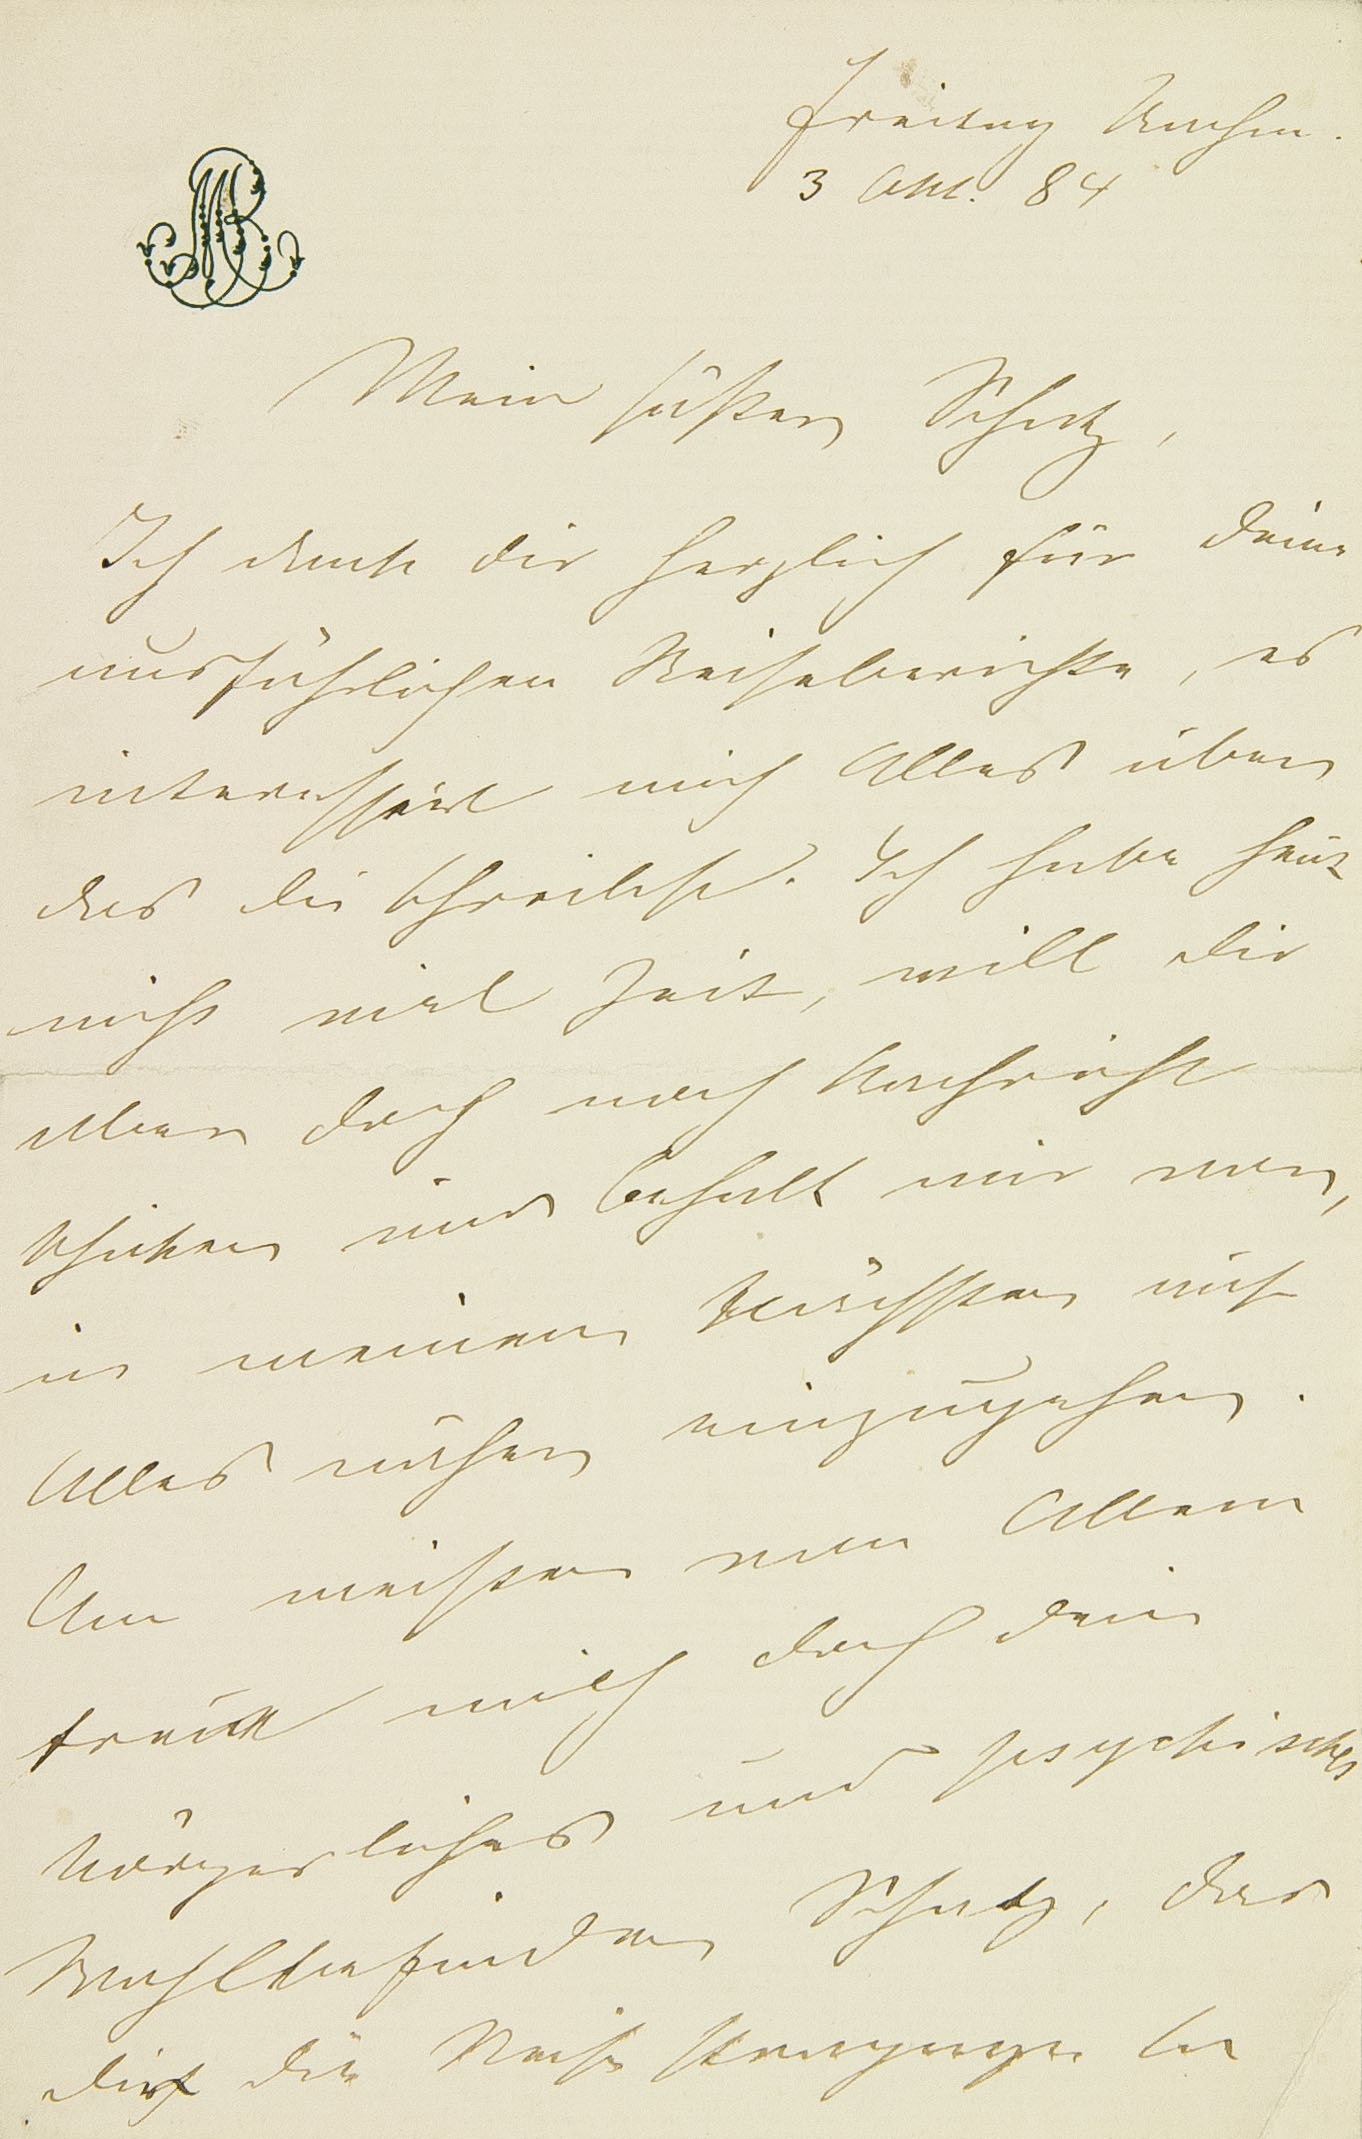 Freitag Nachm.
3 Okt. 84
MB
Mein süßer Schatz,
Ich danke dir herzlich für deine
ausführlichen Reiseberichte, es
interessirt mich Alles über
das du schreibst. Ich habe heut
nicht viel Zeit, will dir
aber doch noch Nachricht
schicken und behalt mir vor,
in meinem Nächsten auf
Alles näher einzugehen.
Am meisten von Allem
freut mich doch dein
körperliches und psychisches
Wohlbefinden Schatz, das
dir die Reise